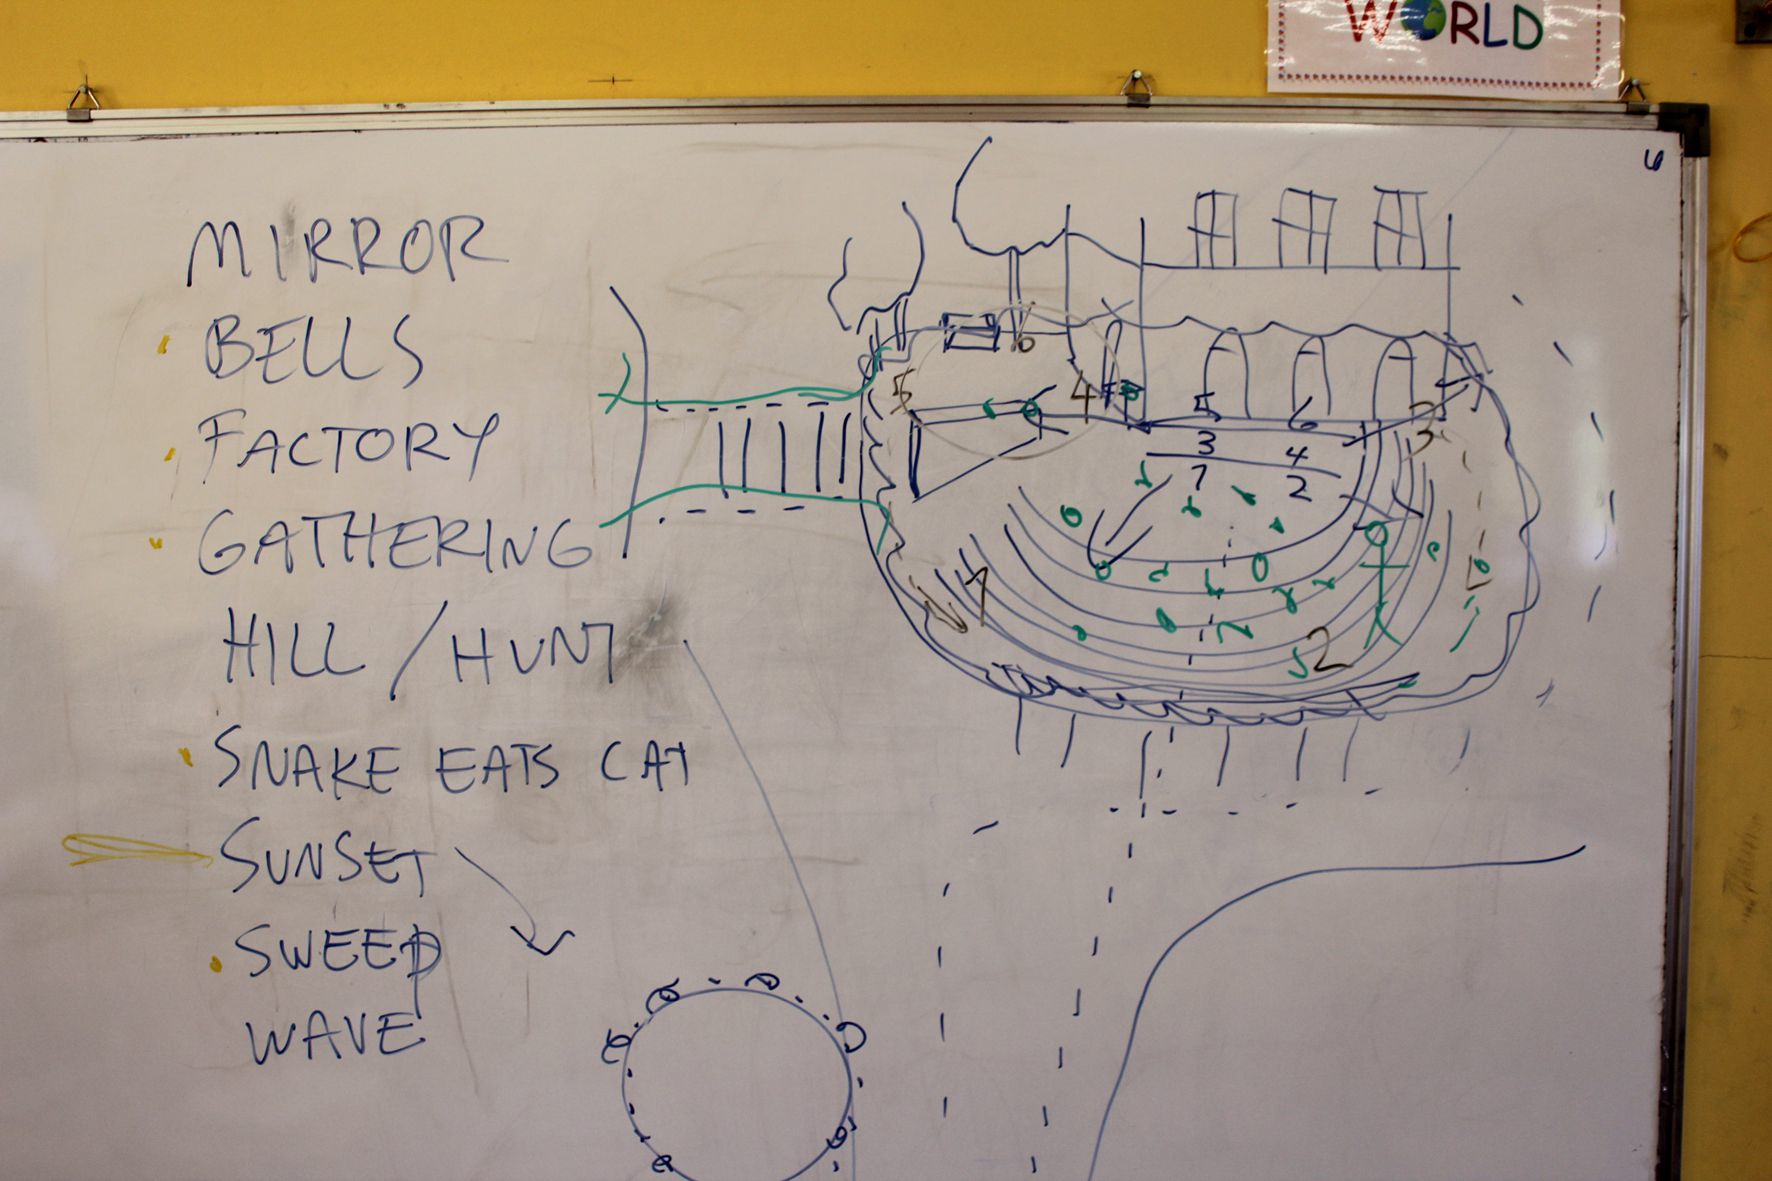 WORLD
MIRROR
BELLS
FACTORY
GATHERING
HILL / HUNT
SNAKE EATS CAT
SUNSET
SWEEP
WAVE
6
5
4
3
5 6
3 4
1 2
1
2